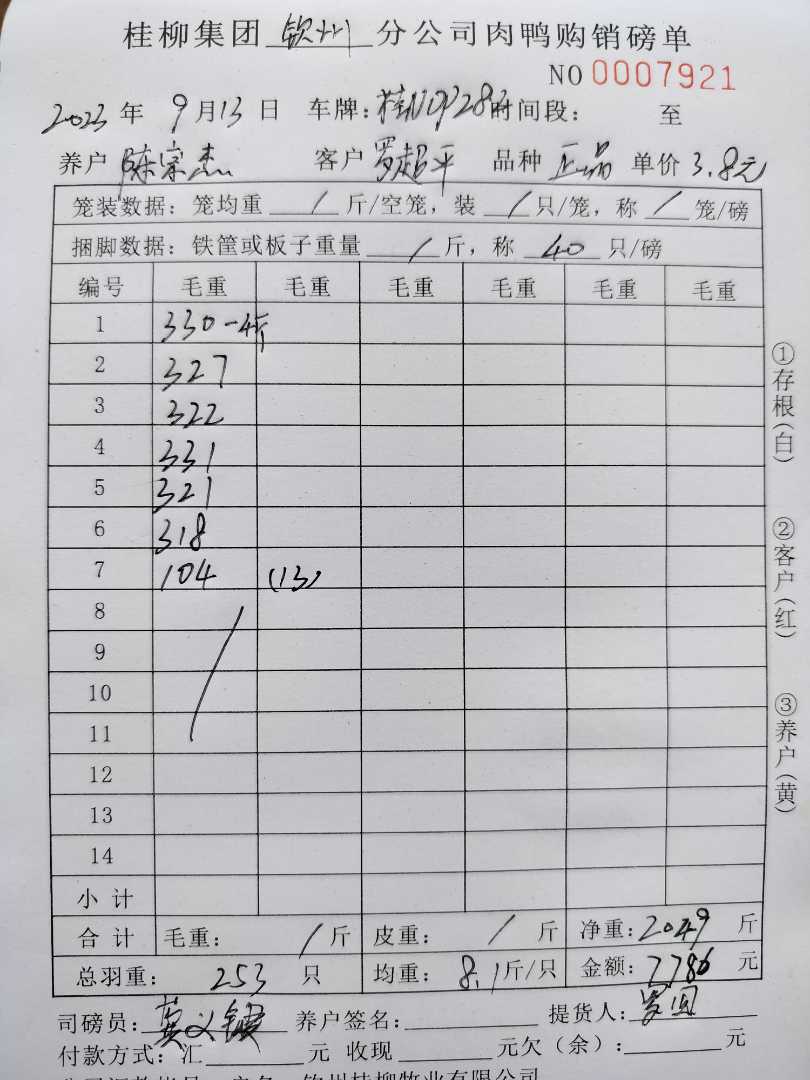 桂柳集团 钦州 分公司肉鸭购销磅单
NO 0007921
2023 年 9 月 13 日 车牌: 桂N0P283 时间段: 至
养户 陈宗杰 客户 罗超平 品种 正品 单价 3.8元
笼装数据: 笼均重 / 斤/空笼, 装 / 只/笼, 称 / 笼/磅
捆脚数据: 铁筐或板子重量 / 斤, 称 40 只/磅
编号 毛重 毛重 毛重 毛重 毛重 毛重
1 330-4斤
2 327
3 322
4 331
5 321
6 318
7 104 (13)
8
9
10
11
12
13
14
小计
合计 毛重: / 斤 皮重: / 斤 净重: 2049 斤
总羽重: 253 只 均重: 8.1 斤/只 金额: 7786 元
司磅员: 养户签名: 提货人:
付款方式: 汇 元 收现 元欠(余): 元
①存根(白)
②客户(红)
③养户(黄)